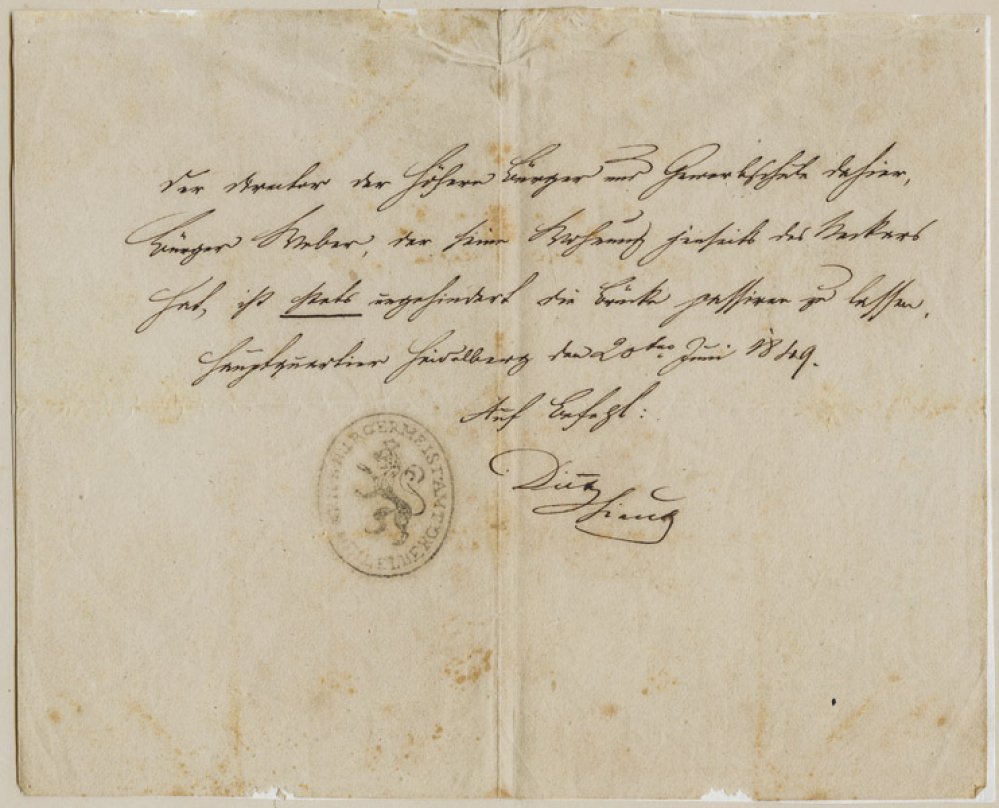 Der Curator der höhern Bürger und Gewerbschule dahier,
Bürger Weber, der seine Wohnung jenseits des Neckars
hat, ist stets ungehindert die Brücke passiren zu lassen.
Hauptquartier Heidelberg den 20ten Juni 1849.
Auf Befehl:
BÜRGERMEISTAMT HEIDELBERG